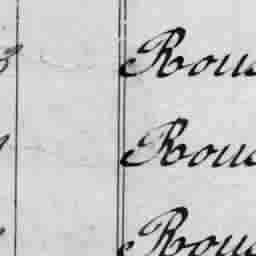 Rous
Rous
Rous